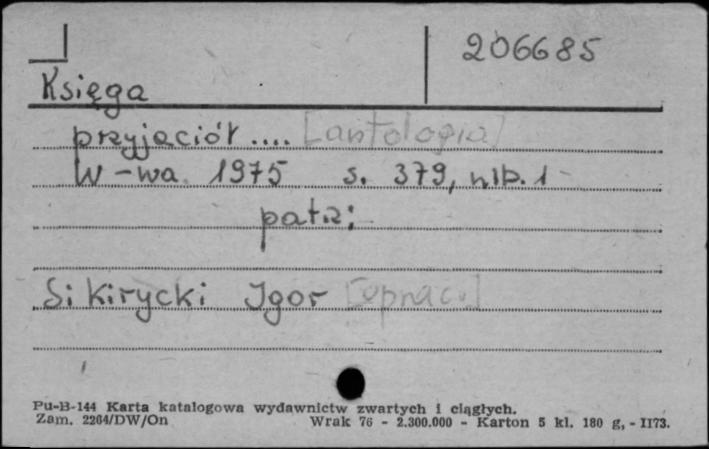 206685
Księga
przyjaciół .... [antologia]
W-wa 1975 s. 379, nlb. 1
patrz:
Sikirycki Igor [oprac.]
Pu-B-144 Karta katalogowa wydawnictw zwartych i ciągłych.
Zam. 2264/DW/On Wrak 76 - 2.300.000 - Karton 5 kl. 180 g, - II73.